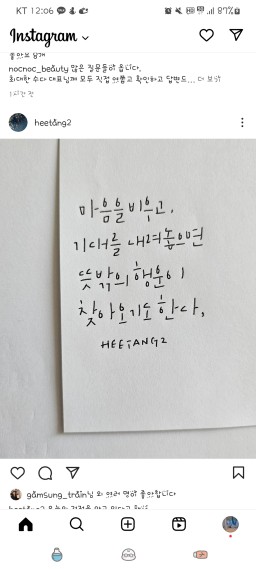 KT 12:06
87%
Instagram
좋아요 8개
nocnoc_beauty 많은 질문들이 옵니다.
최대한 수다 대표님께 모두 직접 여쭙고 확인하고 답변드... 더 보기
1시간 전
heetang2
마음을 비우고,
기대를 내려놓으면
뜻밖의 행운이
찾아오기도 한다.
HEETANG2
gamsung_train님 외 여러 명이 좋아합니다